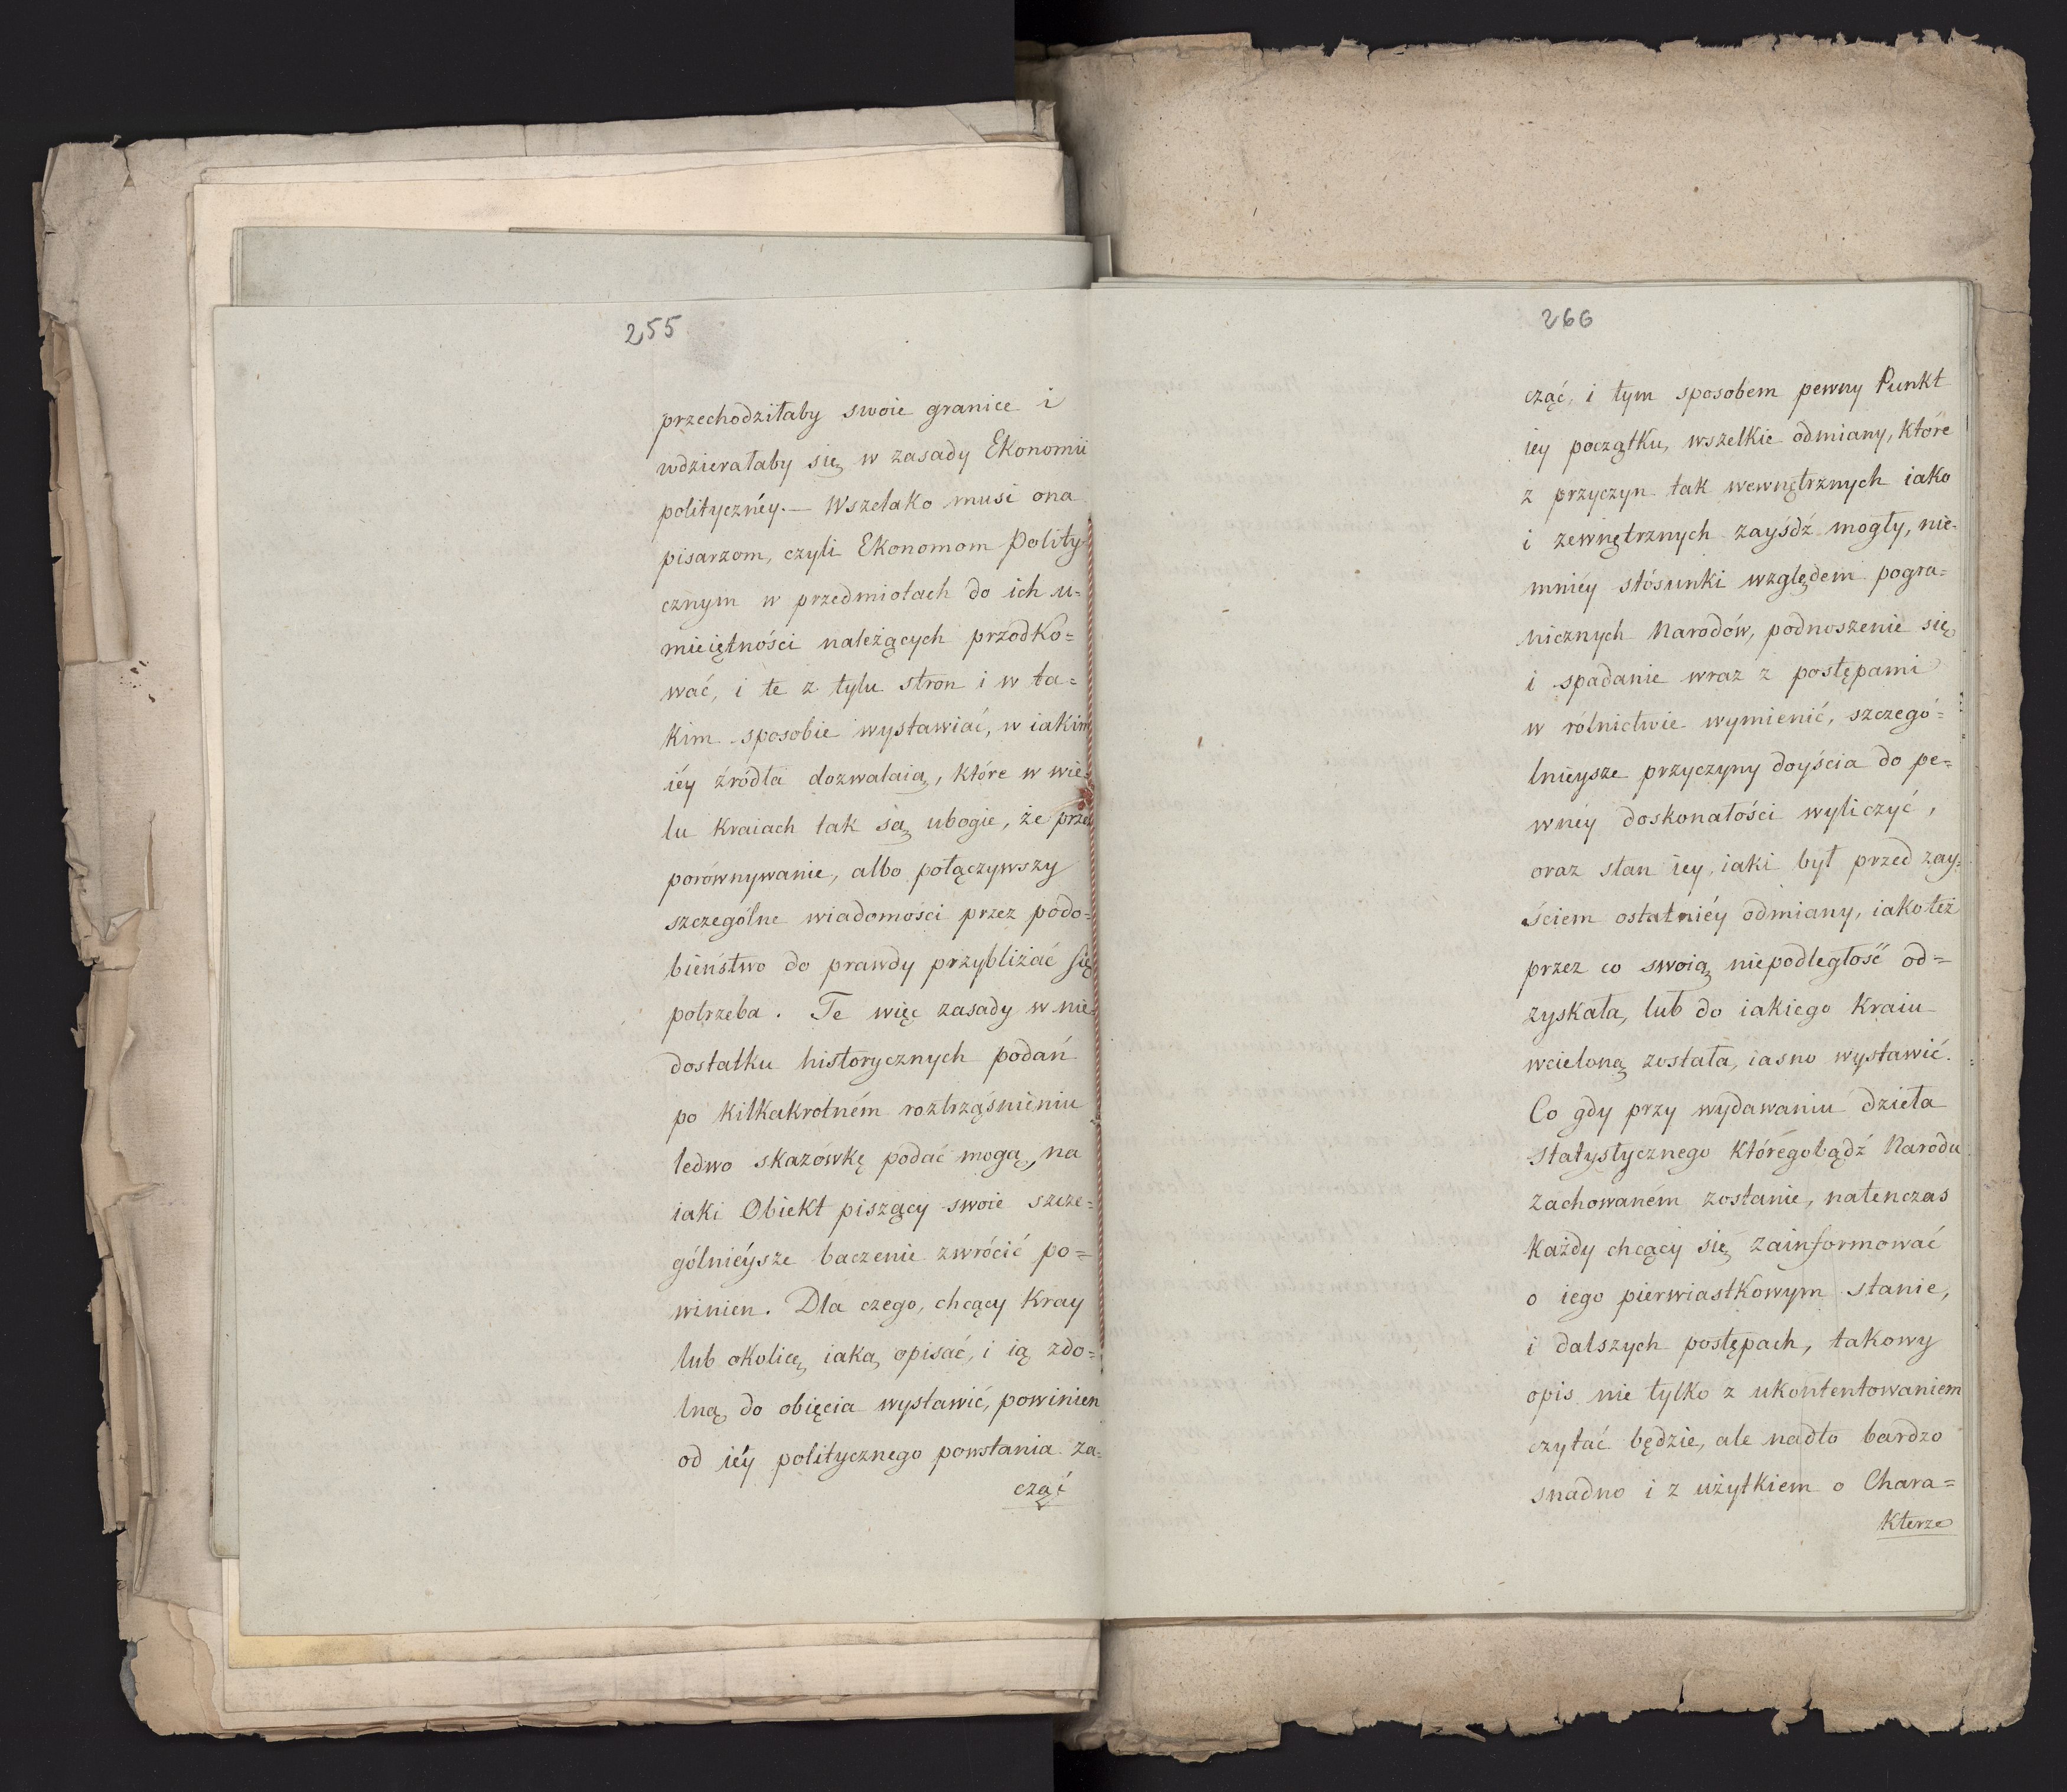 255
przechodziłaby swoie granice i
wdzierałaby się w zasady Ekonomii
polityczney. — Wszelako musi ona
pisarzom, czyli Ekonomom Polity-
cznym w przedmiotach do ich u=
mieiętności należących przodko=
wać, i te z tylu stron i w ta=
kim sposobie wystawiać, w iakim
iéy źródła dozwalaią, które w wie-
lu kraiach tak są ubogie, że przez
porównywanie, albo połączywszy
szczególne wiadomości przez podo=
bieństwo do prawdy przybliżać się
potrzeba. Te więc zasady w nie-
dostatku historycznych podań
po kilkakrotném roztrząśnieniu
ledwo skazówkę podać mogą, na
iaki Obiekt piszący swoie szcze=
gólniéysze baczenie zwrócić po=
winien. Dla czego, chcący Kray
lub okolicę iaką opisać, i ią zdo=
lną do obięcia wystawić, powinien
od iéy politycznego powstania za-
cząć
266
cząć, i tym sposobem pewny Punkt
iey początku, wszelkie odmiany, które
z przyczyn tak wewnętrznych iako
i zewnętrznych zayśdź mogły, nie-
mniéy stósunki względem pogra=
nicznych Narodów, podnoszenie się
i spadanie wraz z postępami
w rólnictwie wymienić, szczegó=
lnieysze przyczyny doyścia do pe=
wnéy doskonałości wyliczyć,
oraz stan iey, iaki był przed zay=
ściem ostatniéy odmiany, iakoteż
przez co swoią niepodległość od=
zyskała, lub do iakiego Kraiu
wcieloną została, iasno wystawić.
Co gdy przy wydawaniu dzieła
statystycznego któregobądź Narodu
zachowaném zostanie, natenczas
każdy chcący się zainformować
o iego pierwiastkowym stanie,
i dalszych postępach, takowy
opis nie tylko z ukontentowaniem
czytać będzie, ale nadto bardzo
snadno i z użytkiem o Chara=
kterze